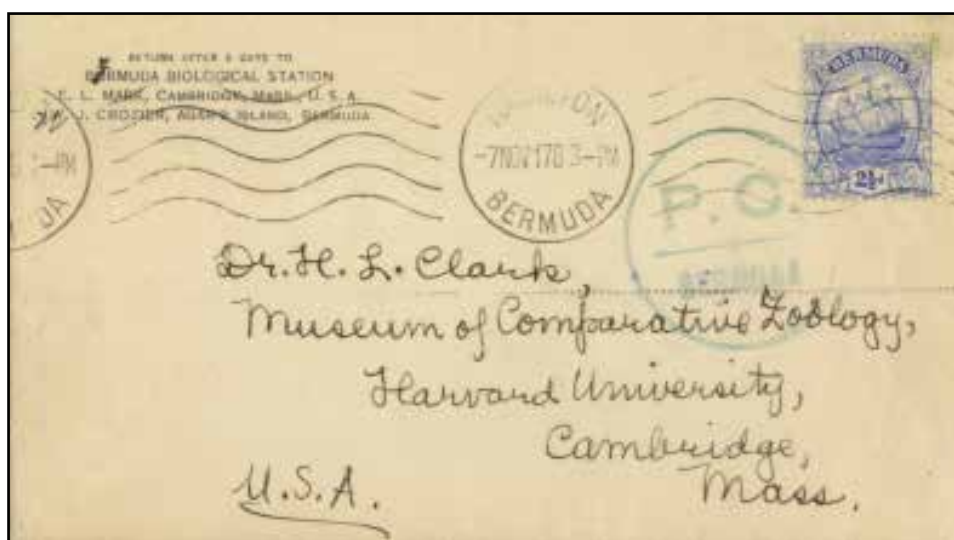 RETURN AFTER 5 DAYS TO
BERMUDA BIOLOGICAL STATION
E. L. MARK, CAMBRIDGE, MASS., U. S. A.
W. J. CROZIER, AGAR'S ISLAND, BERMUDA
-PM
DA
HAMILTON
-7NOV17 3-PM
BERMUDA
BERMUDA
2½ᵈ
P. C.
BERMUDA
Dr. H. L. Clark,
Museum of Comparative Zoölogy,
Harvard University,
Cambridge,
Mass.
U.S.A.